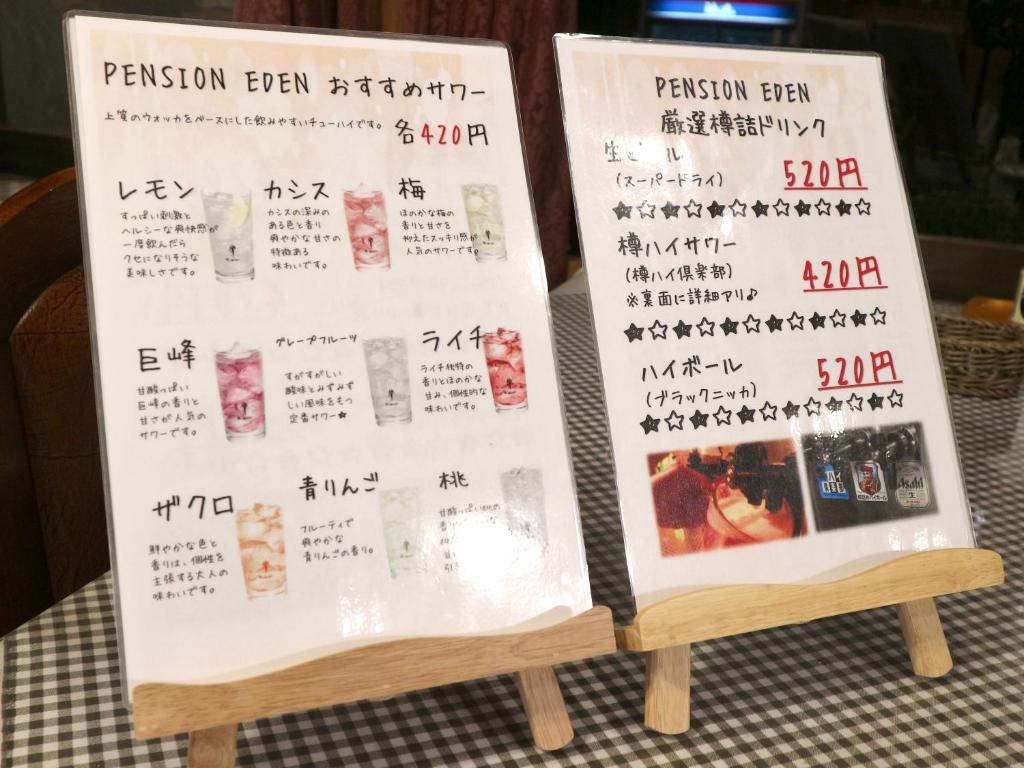 PENSION EDEN おすすめサワー
上質のウォッカをベースにした飲みやすいチューハイです。
各420円
レモン
すっぱい刺激と
ヘルシーな爽快感が
一度飲んだら
クセになりそうな
美味しさです。
カシス
カシスの深みの
ある色と香り
爽やかな甘さの
特徴ある
味わいです。
梅
ほのかな梅の
香りと甘さを
抑えたスッキリ感が
人気のサワーです。
巨峰
甘酸っぱい
巨峰の香りと
甘さが人気の
サワーです。
グレープフルーツ
すがすがしい
酸味とみずみず
しい風味をもつ
定番サワー★
ライチ
ライチ独特の
香りとほのかな
甘み、個性的な
味わいです。
ザクロ
鮮やかな色と
香りは、個性を
主張する大人の
味わいです。
青りんご
フルーティで
爽やかな
青りんごの香り。
桃
甘酸っぱい桃の
PENSION EDEN
厳選樽詰ドリンク
生ビール
(スーパードライ)
520円
★☆★☆★☆★☆★☆★☆
樽ハイサワー
(樽ハイ倶楽部)
※裏面に詳細アリ♪
420円
★☆★☆★☆★☆★☆★☆
ハイボール
(ブラックニッカ)
520円
★☆★☆★☆★☆★☆★☆
Asahi
生